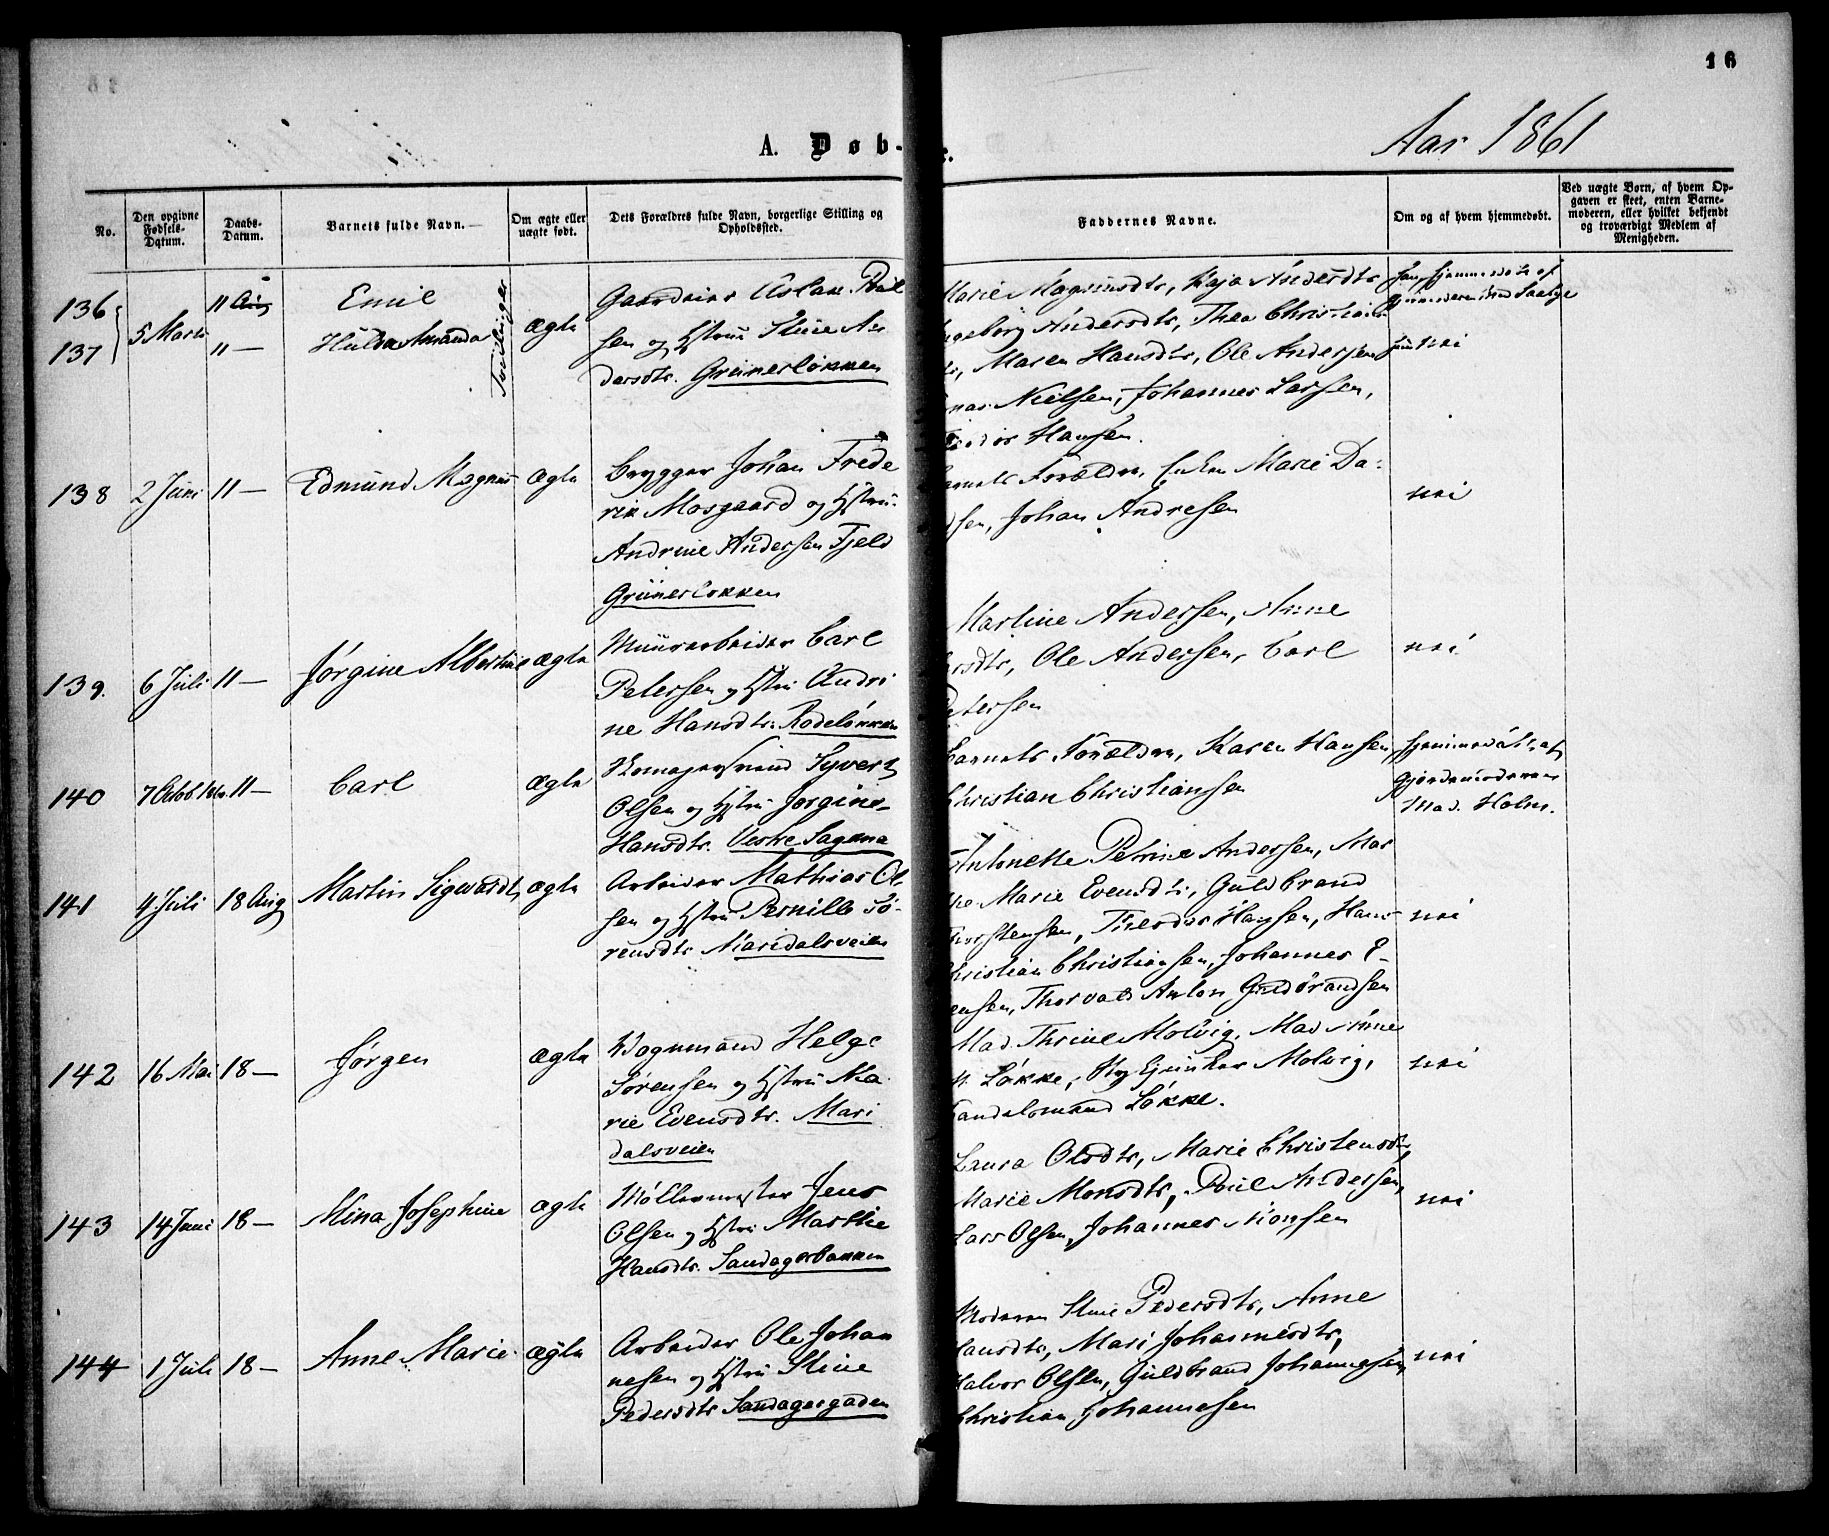 16
A. Døb-
Aar 1861
No.
Den opgivne Fødsels-Datum.
Daabs-Datum.
Barnets fulde Navn.
Om ægte eller uægte født.
Dets Forældres fulde Navn, borgerlige Stilling og Opholdssted.
Faddernes Navne.
Om og af hvem hjemmedøbt.
Ved uægte Børn, af hvem Opgaven er skeet, enten Barnemoderen, eller hvilket bekjendt og troværdigt Medlem af Menigheden.
136
137
5 Marts
11 Aug
11 —
Emil
Hulda Amanda
Tvillinger
ægte
Gaardeier Aslak Poul
sen og Hstru Stine An
dersdtr. Grünerløkken
Marie Magnusdtr, Kaja Andersdtr
Ingeborg Andersdtr, Thea Christians
Maren Hansdtr, Ole Andersen
Nielsen, Johannes Larsen,
Hansen.
hjemmedøbt af
nei
138
2 Juni
11 —
Edmund Magnus
ægte
Brygger Johan Frede
rik Mosgaard og Hstru
Andrine Andersen Fjeld
Grünerløkken
Forældre, Enken Marie Da-
sen, Johan Andresen
nei
139.
6 Juli
11 —
Jørgine Albertine
ægte
Muurarbeider Carl
Petersen og Hstru Andri
ne Hansdtr. Rodeløkken
Martine Andersen, Anne
Ole Andersen, Carl
Petersen
nei
140
7 Octob
11 —
Carl
ægte
Syvert
Olsen og Hstru Jørgine
Hansdtr. Vestre Sagene
Barnets Forældre, Karen Hansen
Christian Christiansen
Hjemmedøbt af
Gjordemoderen
Mad. Holm.
141
4 Juli
18 Aug
Martin Sigvardt
ægte
Arbeider Mathias Ol
sen og Hstru Pernille Sø-
rensdtr Maridalsveien
Antonette Petrine Andersen, Mar
Marie Evensdtr, Guldbrand
Thorstensen, Theodor Hansen, Hans
Christian Christiansen, Johannes E-
vensen, Thorvald Anton Guldbrandsen
nei
142
16 Mai
18 —
Jørgen
ægte
Vognmand Helge
Sørensen og Hstru Ma
rie Evensdtr. Mari
dalsveien
Mad. Thrine Molvig, Mad Anne
Løkke, Molvig,
Handelsmand Løkke.
nei
143
14 Juni
18 —
Mina Josephine
ægte
Møllermester Jens
Olsen og Hstru Marthe
Hansdtr. Sandagerbakken
Laura Olsdtr, Marie Christensdtr,
Marie Monsdtr, Poul Andersen,
Lars Olsen, Johannes Monsen
nei
144
1 Juli
18 —
Anne Marie
ægte
Arbeider Ole Johan
nesen og Hstru Stine
Pedersdtr Sandagergaden
Moderen Stine Pedersdtr, Anne
Hansdtr, Mari Johannesdtr,
Halvor Olsen, Guldbrand Johannesen,
Christian Johannesen
nei